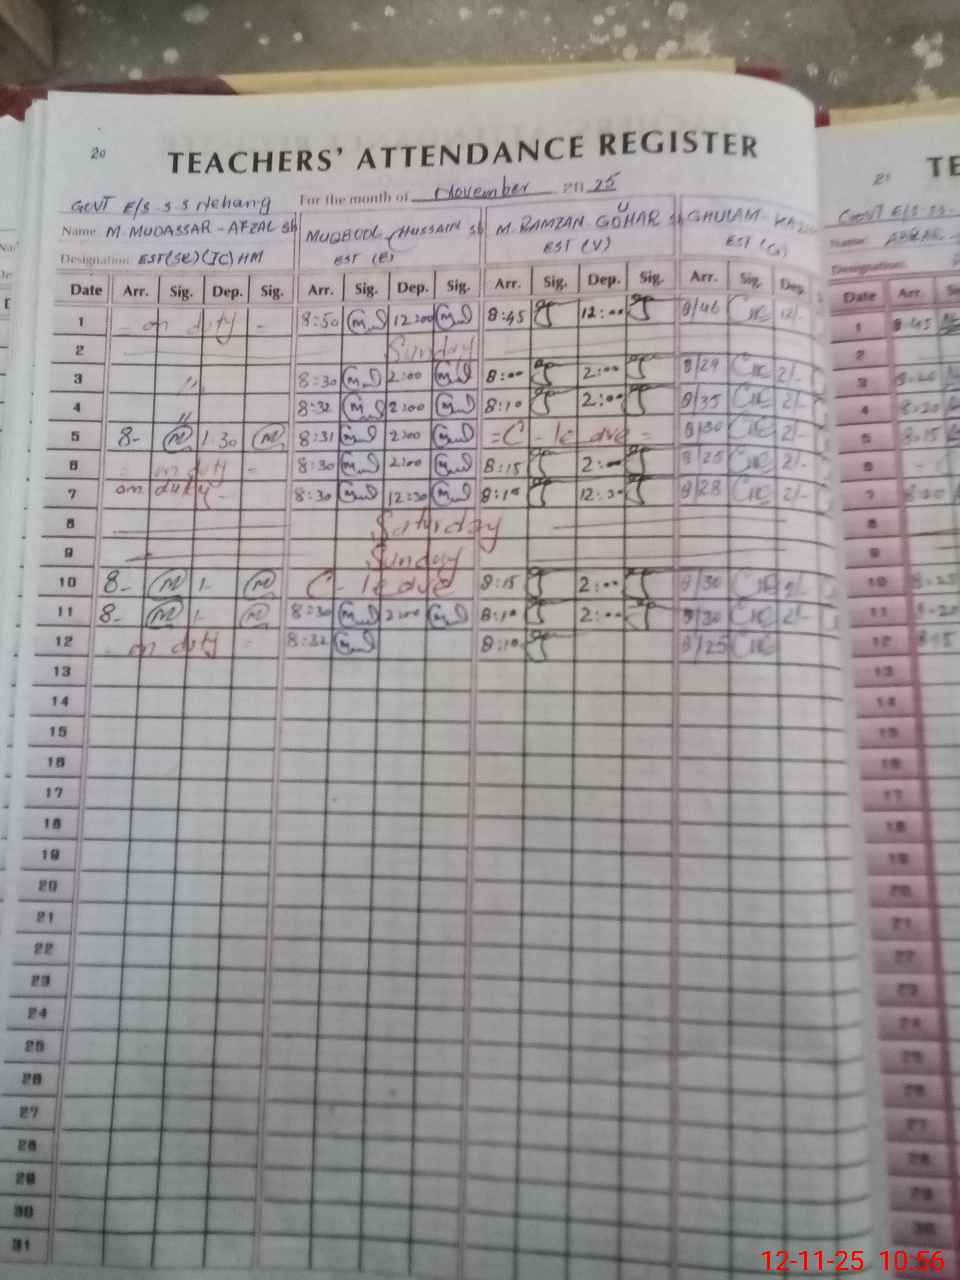 20
TEACHERS' ATTENDANCE REGISTER
GOVT E/S. S.S Nehang For the month of November 2025
Name M. MUDASSAR - AFZAL Sb MUQBOOL HUSSAIN Sb M. RAMZAN GOHAR Sb GHULAM
Designation EST(SE)(IC)HM EST (E) EST (V) EST (G)
Date Arr. Sig. Dep. Sig. Arr. Sig. Dep. Sig. Arr. Sig. Dep. Sig. Arr. Sig. Dep.
1 - on duty - 8:50 12:00 8:45 12:00 8/46 12/-
2 Sunday
3 " 8:30 2:00 8:00 2:00 8/29 2/-
4 " 8:32 2:00 8:10 2:00 8/35 2/-
5 8- 1:30 8:31 2:00 = C - leave = 8/30 2/-
6 - on duty - 8:30 2:00 8:15 2:00 8/25 2/-
7 on duty - 8:30 12:30 8:15 12:30 8/28 2/-
8 Saturday
9 Sunday
10 8- 1- C - leave 8:15 2:00 8/30 2/-
11 8- 1- 8:30 2:00 8:10 2:00 8/30 2/-
12 - on duty - 8:32 8:10 8/25
13
14
15
16
17
18
19
20
21
22
23
24
25
26
27
28
29
30
31
21
TE
GOVT E/S. SS.
Name
Designation
Date Arr.
1 8:45
2
3 8:20
4 8:20
5 8:15
6
7 8:20
8
9
10 8:25
11 8:20
12 8:15
13
14
15
16
17
18
19
20
21
22
23
24
25
26
27
28
29
30
12-11-25 10:56